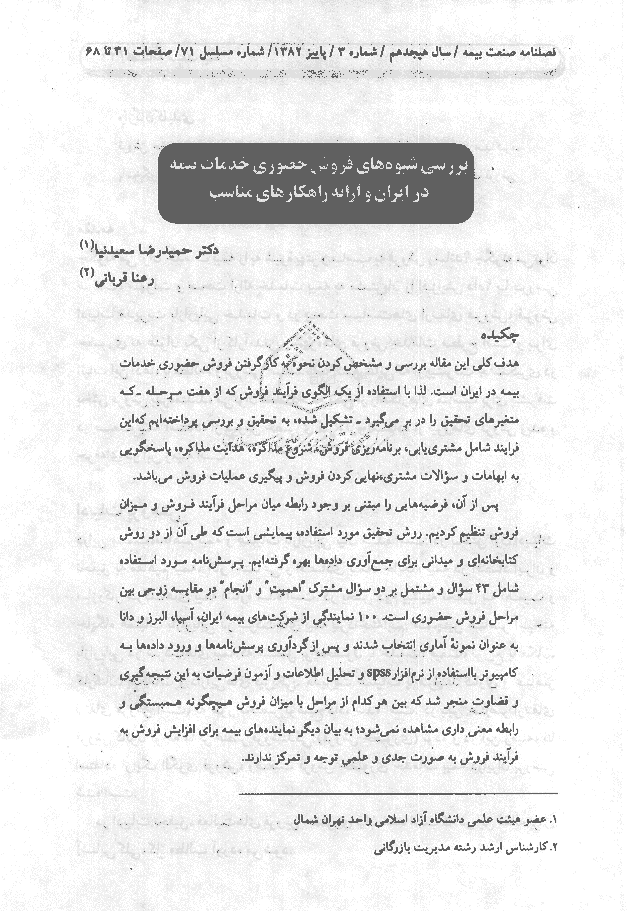 فصلنامه صنعت بیمه / سال هیجدهم / شماره ۳ / پاییز ۱۳۸۲/ شماره مسلسل ۷۱/ صفحات ۴۱ تا ۶۸
بررسی شیوه‌های فروش حضوری خدمات بیمه
در ایران و ارائه راهکارهای مناسب
دکتر حمیدرضا سعیدنیا(۱)
رعنا قربانی(۲)
چکیده
هدف کلی این مقاله بررسی و مشخص کردن نحوه به کارگرفتن فروش حضوری خدمات
بیمه در ایران است. لذا با استفاده از یک الگوی فرآیند فروش که از هفت مرحله ـ که
متغیرهای تحقیق را در بر می‌گیرد ـ تشکیل شده، به تحقیق و بررسی پرداخته‌ایم که‌این
فرایند شامل مشتری‌یابی، برنامه‌ریزی فروش، شروع مذاکره، هدایت مذاکره، پاسخگویی
به ابهامات و سؤالات مشتری،نهایی‌کردن فروش و پیگیری عملیات فروش می‌باشد.
پس از آن، فرضیه‌هایی را مبتنی بر وجود رابطه میان مراحل فرآیند فروش و میزان
فروش تنظیم کردیم. روش تحقیق مورد استفاده، پیمایشی است که طی آن از دو روش
کتابخانه‌ای و میدانی برای جمع‌آوری داده‌ها بهره گرفته‌ایم. پرسش‌نامه مورد استفاده
شامل ۴۳ سؤال و مشتمل بر دو سؤال مشترک "اهمیت" و "انجام" در مقایسه زوجی بین
مراحل فروش حضوری است. ۱۰۰ نمایندگی از شرکت‌های بیمه ایران، آسیا، البرز و دانا
به عنوان نمونهٔ آماری انتخاب شدند و پس از گردآوری پرسش‌نامه‌ها و ورود داده‌ها به
کامپیوتر بااستفاده از نرم‌افزار spss و تحلیل اطلاعات و آزمون فرضیات به این نتیجه‌گیری
و قضاوت منجر شد که بین هر کدام از مراحل با میزان فروش هیچگونه همبستگی و
رابطه معنی داری مشاهده نمی‌شود؛ به بیان دیگر نماینده‌های بیمه برای افزایش فروش به
فرآیند فروش به صورت جدی و علمی توجه و تمرکز ندارند.
۱. عضو هیئت علمی دانشگاه آزاد اسلامی واحد تهران شمال
۲. کارشناس ارشد رشته مدیریت بازرگانی